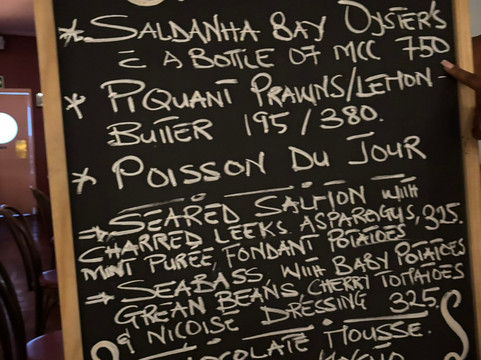 * SALDANHA BAY OYSTER'S
c̄ A BOTTLE OF MCC 750
* PIQUANT PRAWNS/LEMON-
BUTTER 195/380.
* POISSON DU JOUR
⇒ SEARED SALMON WITH
CHARRED LEEKS, ASPARAGUS, 325.
MINT PUREE, FONDANT POTATOES
⇒ SEABASS, WITH BABY POTATOES
GREAN BEANS CHERRY TOMATOES
& NICOISE DRESSING 325
CHOCOLATE MOUSSE.